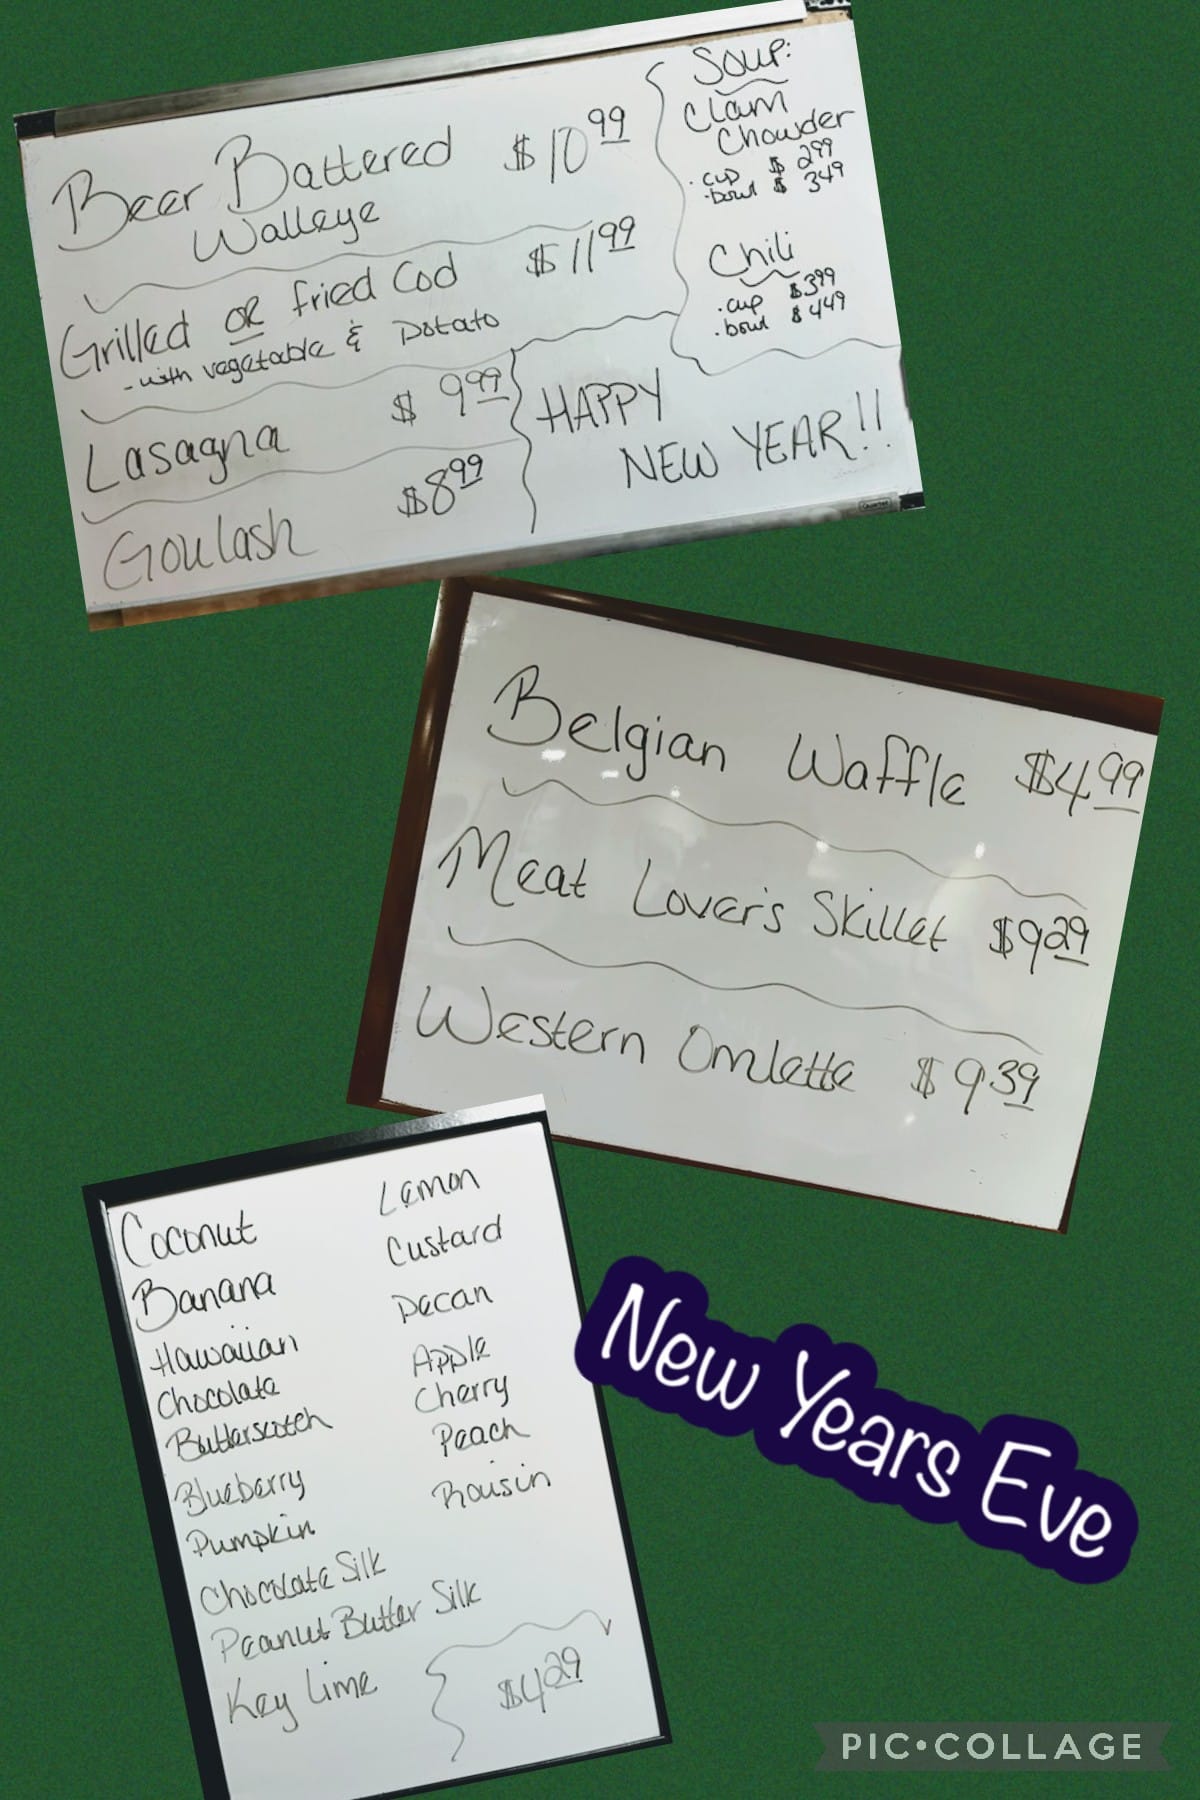 Beer Battered $10 99
Walleye
Grilled or fried Cod $11 99
-with vegetable & potato
Lasagna $ 9 99
Goulash $8 99
Soup:
Clam
Chowder
·cup $ 299
·bowl $ 349
Chili
·cup $399
·bowl $449
HAPPY
NEW YEAR!!
Quartet
Belgian Waffle $4 99
Meat Lover's Skillet $9 29
Western Omlette $9 39
Coconut
Banana
Hawaiian
Chocolate
Butterscotch
Blueberry
Pumpkin
Chocolate Silk
Peanut Butter Silk
Key Lime
Lemon
Custard
Pecan
Apple
Cherry
Peach
Raisin
$4 29
New Years Eve
PIC•COLLAGE